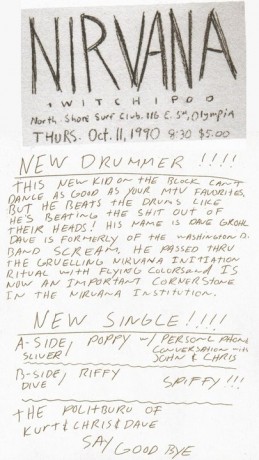 NIRVANA
WITCHYPOO
North Shore Surf Club. 116 E. 5th, Olympia
THURS. Oct. 11, 1990 8:30 $5.00
NEW DRUMMER !!!!
THIS NEW KID ON THE BLOCK CAN'T
DANCE AS GOOD AS YOUR MTV FAVORITES,
BUT HE BEATS THE DRUMS LIKE
HE'S BEATING THE SHIT OUT OF
THEIR HEADS! HIS NAME IS DAVE GROHL
DAVE IS FORMERLY OF THE WASHINGTON D.
BAND SCREAM. HE PASSED THRU
THE GRUELLING NIRVANA INITIATION
RITUAL WITH FLYING COLORS AND IS
NOW AN IMPORTANT CORNERSTONE
IN THE NIRVANA INSTITUTION.
NEW SINGLE!!!!
A-SIDE, POPPY w/ PERSONL PHONE
SLIVER CONVERSATION WITH
JOHN & CHRIS
B-SIDE, RIFFY
DIVE SPIFFY!!!
THE POLITBURO OF
KURT & CHRIS & DAVE
SAY GOOD BYE